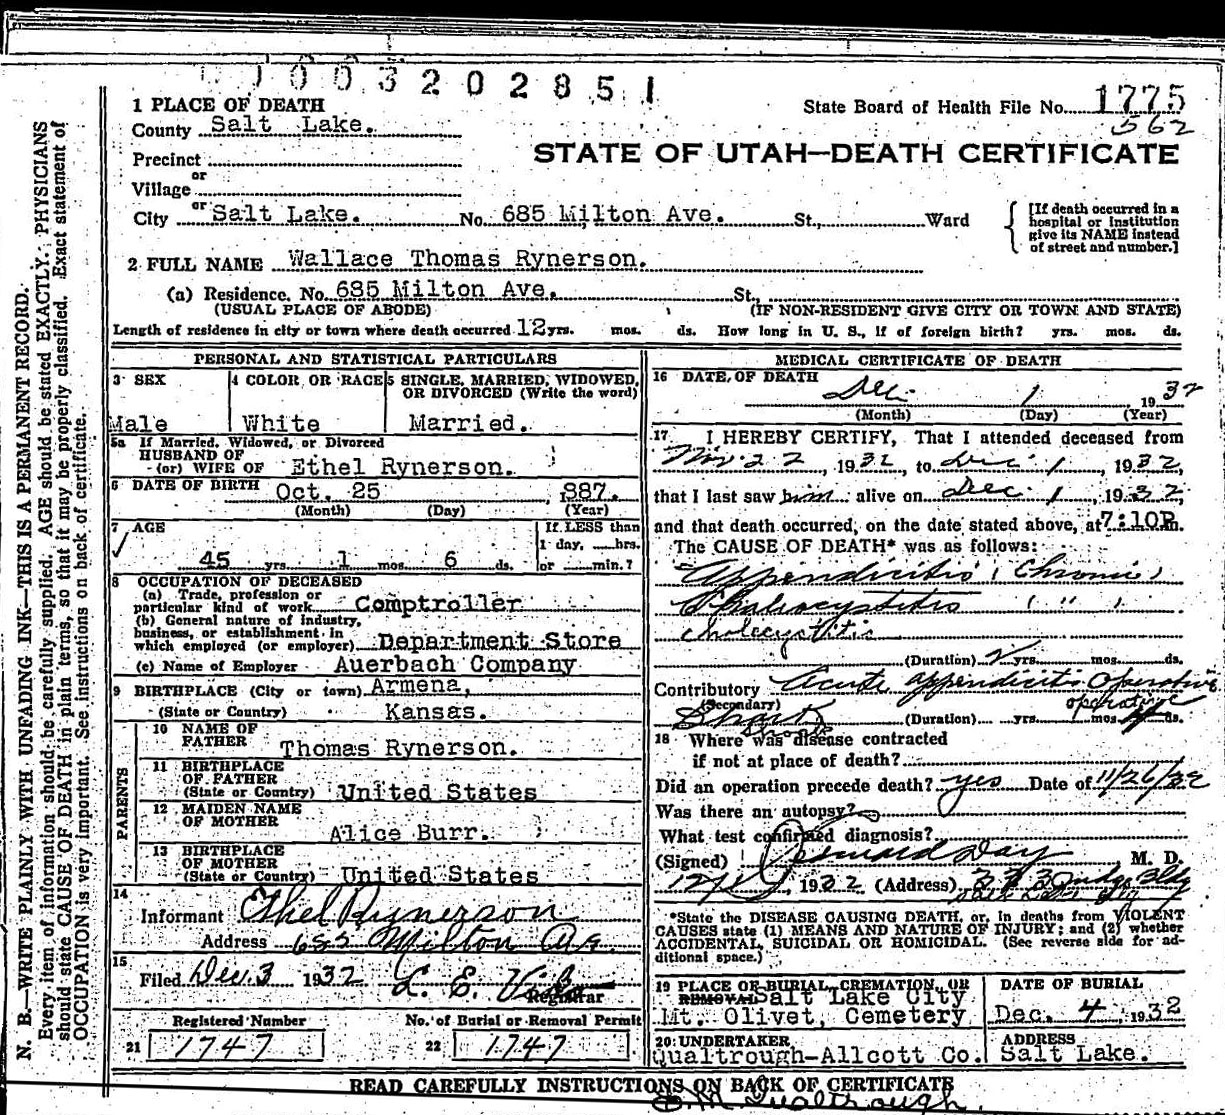 003202851
1 PLACE OF DEATH
State Board of Health File No. 1775
562
County Salt Lake.
STATE OF UTAH—DEATH CERTIFICATE
Precinct
or
Village
or
City Salt Lake. No. 685 Milton Ave. St., Ward
{[If death occurred in a hospital or institution give its NAME instead of street and number.]
2 FULL NAME Wallace Thomas Rynerson.
(a) Residence. No. 685 Milton Ave. St.,
(USUAL PLACE OF ABODE) (IF NON-RESIDENT GIVE CITY OR TOWN AND STATE)
Length of residence in city or town where death occurred 12 yrs. mos. ds. How long in U. S., if of foreign birth? yrs. mos. ds.
PERSONAL AND STATISTICAL PARTICULARS
3 SEX
Male
4 COLOR OR RACE
White
5 SINGLE, MARRIED, WIDOWED,
OR DIVORCED (Write the word)
Married.
5a If Married, Widowed, or Divorced
HUSBAND OF
(or) WIFE OF Ethel Rynerson.
6 DATE OF BIRTH Oct. 25 1887.
(Month) (Day) (Year)
7 AGE
45 yrs. 1 mos. 6 ds.
If LESS than
1 day, hrs.
or min.?
8 OCCUPATION OF DECEASED
(a) Trade, profession or
particular kind of work Comptroller
(b) General nature of industry,
business, or establishment in
which employed (or employer) Department Store
(c) Name of Employer Auerbach Company
9 BIRTHPLACE (City or town) Armena,
(State or Country) Kansas.
PARENTS
10 NAME OF
FATHER Thomas Rynerson.
11 BIRTHPLACE
OF FATHER
(State or Country) United States
12 MAIDEN NAME
OF MOTHER Alice Burr.
13 BIRTHPLACE
OF MOTHER
(State or Country) United States
14
Informant Ethel Rynerson
Address 685 Milton Av.
15
Filed Dec. 3 1932 L. E.
Registrar
Registered Number
21 1747
No. of Burial or Removal Permit
22 1747
MEDICAL CERTIFICATE OF DEATH
16 DATE OF DEATH Dec. 1 1932
(Month) (Day) (Year)
17 I HEREBY CERTIFY, That I attended deceased from
Nov 22, 1932, to Dec. 1, 1932,
that I last saw him alive on Dec. 1, 1932,
and that death occurred, on the date stated above, at 7:10P.m.
The CAUSE OF DEATH* was as follows:
Appendicitis (Chronic)
( " )
cholecystitis
(Duration) 2 yrs. mos. ds.
Contributory Acute appendicitis Operative
(Secondary) operative
Shock (Duration) yrs. mos. ds.
Shock
18 Where was disease contracted
if not at place of death?
Did an operation precede death? yes Date of 11/26/32
Was there an autopsy?
What test confirmed diagnosis?
(Signed) Day M. D.
1932 (Address) Judge Bldg
*State the DISEASE CAUSING DEATH, or, in deaths from VIOLENT
CAUSES state (1) MEANS AND NATURE OF INJURY; and (2) whether
ACCIDENTAL, SUICIDAL OR HOMICIDAL. (See reverse side for ad-
ditional space.)
19 PLACE OF BURIAL, CREMATION, OR
REMOVAL Salt Lake City
Mt. Olivet, Cemetery
DATE OF BURIAL
Dec. 4, 1932
20 UNDERTAKER
Qualtrough-Allcott Co.
ADDRESS
Salt Lake.
READ CAREFULLY INSTRUCTIONS ON BACK OF CERTIFICATE
Qualtrough.
N. B.—WRITE PLAINLY WITH UNFADING INK—THIS IS A PERMANENT RECORD.
Every item of information should be carefully supplied. AGE should be stated EXACTLY. PHYSICIANS
should state CAUSE OF DEATH in plain terms, so that it may be properly classified. Exact statement of
OCCUPATION is very important. See instructions on back of certificate.